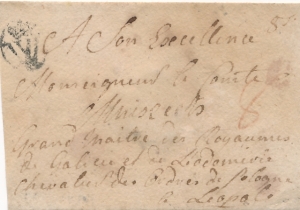 A Son Excellence
Monseigneur le Comte
Grand Maitre des Royaumes
de Galicie et de Lodomirie
Chevalier des Ordres de Pologne
à Léopole